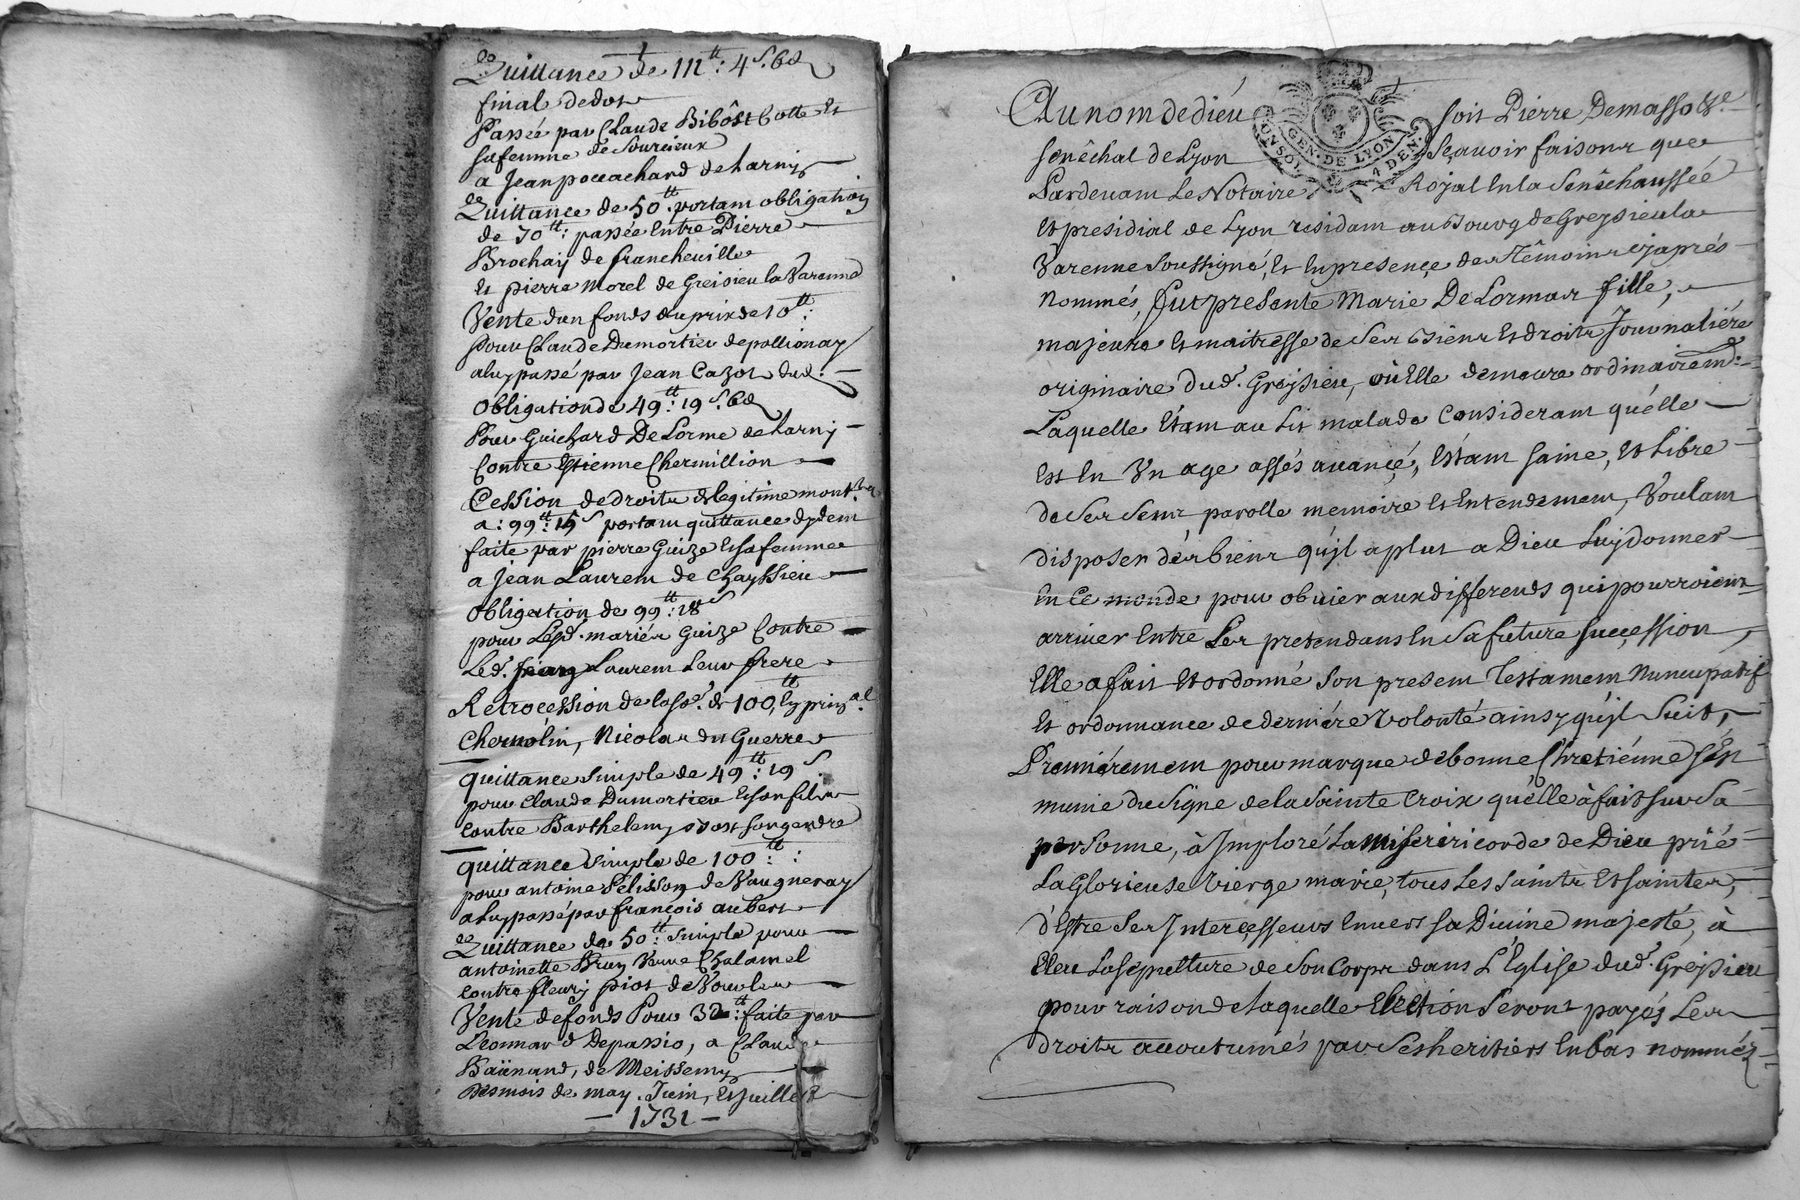 Quittance de 111ᵗᵗ: 4ˢ. 6ᵈ
final dedot
Passée par Claude Bibost Cotte Et
sa femme de Sourcieux
a Jean pouachard de Larny
Quittance de 50ᵗᵗ. portant obligation
de 70ᵗᵗ: passée Entre Pierre
Brochay de francheuille
Et pierre Morel de Greisieu la Varenne
Vente dun fonds du prix de 10ᵗᵗ:
Pour Claude Dumortier depollionay
aluy passé par Jean Cazot dud.
Obligation de 49ᵗᵗ: 19ˢ. 6ᵈ
Pour Guichard De Lorme de Larny
Contre Estienne Chermillion
Cession de droits de legitime mont.
a: 99ᵗᵗ: 15ˢ portant quittance dydem
faite par pierre Guize Et sa femme
a Jean Laurent de Chayssieu
Obligation de 99ᵗᵗ: 18ˢ
pour Lesd. mariés Guize Contre
Led. Laurent Leur frere
Retrocession de de 100ᵗᵗ,
Nicolas du Guerre
quittance simple de 49ᵗᵗ: 19ˢ
pour Claude Dumortier Et son fils
Contre Barthelemy son gendre
quittance simple de 100ᵗᵗ:
pour antoine Pelisson de Vaugneray
a luy passé par françois aubert
Quittance de 50ᵗᵗ: simple pour
antoinette Brun Veuve Chalamel
Contre fleury piot de
Vente de fonds Pour 32ᵗᵗ: faite par
Leonnard Depassio, a Claude
de Meissemy
Des mois de may. Juin, Et juillet
— 1731 —
Au nom de dieu soit Pierre Demasso &ᵉ
senêchal de Lyon Sçauoir faisons que
GEN. DE LYON
Pardeuant Le Notaire Royal En la Senêchaussée
Et presidial de Lyon residant au Bourg de Greysieu la
Varenne soussigné, Et En presençe des Têmoins cyaprés
Nommés, fut presente Marie De Lormas fille,
majeure Et maitresse de Ses Biens Et droits Journaliére
originaire dud. Greysieu, où Elle demeure ordinairemᵗ.
Laquelle Etant au Lit malade Considerant qu'élle
Est En Vn age assés auançé, Estant saine, Et Libre
de Ses Sens parolle memoire Et Entendement, Voulant
disposer des biens qu'jl a plut a Dieu Luy donner
En Ce monde pour obuier aux differends qui pourroient
arriuer Entre Les pretendans En Sa future Sucçession,
Elle a fait Et ordonné Son present Testament Nuncupatif
Et ordonnance de derniére Volonté ainsy qu'jl Suit,
Premiérement pour marque de bonne Chretiénne s'Est
munie du Signe de la Sainte Croix qu'elle à fait sur Sa
personne, à Imploré La Misericorde de Dieu prié
La Glorieuse Vierge marie, tous Les saints Et saintes,
d'Estre Ses Intercesseurs Enuers sa Diuine majesté, à
Eleu La sepulture de Son Corps dans L'Eglise dud. Greysieu
pour raison de laquelle Election Seront payés Les
droits accoutumés par Ses heritiers En bas nommés